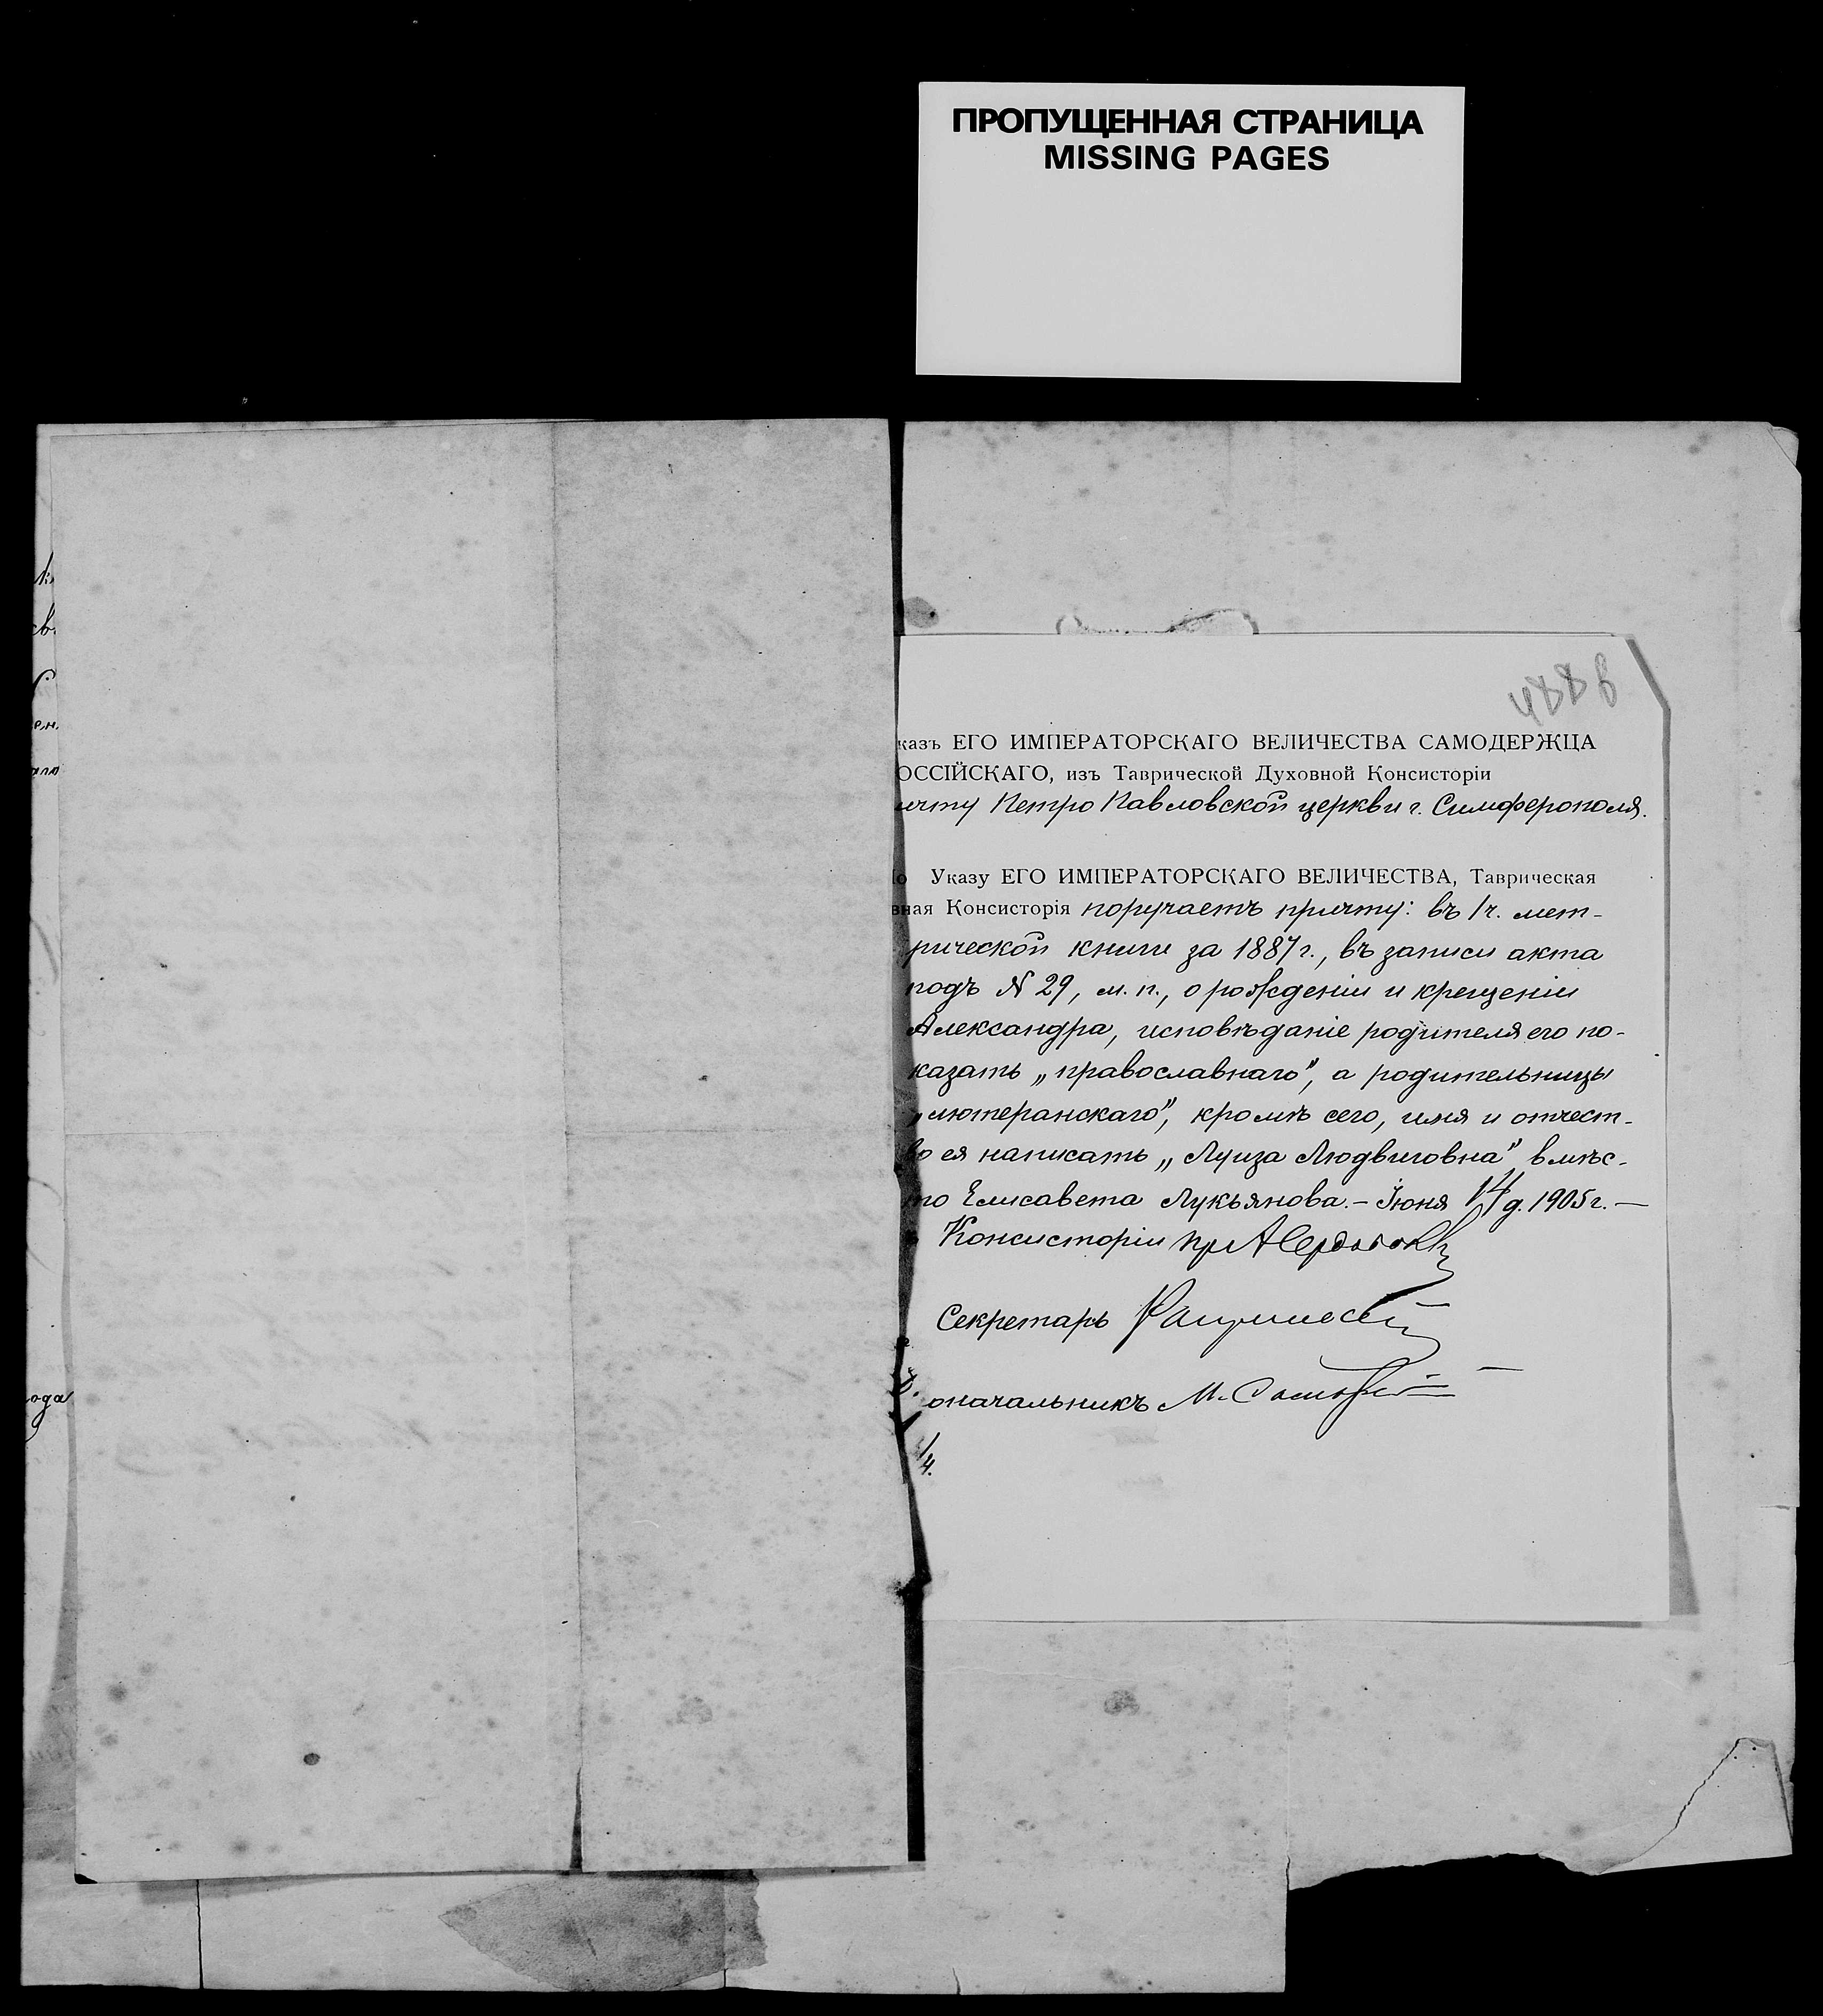 ПРОПУЩЕННАЯ СТРАНИЦА
MISSING PAGES
488б
казъ ЕГО ИМПЕРАТОРСКАГО ВЕЛИЧЕСТВА САМОДЕРЖЦА
ОССІЙСКАГО, изъ Таврической Духовной Консисторіи
ичту Петро Павловской церкви г. Симферополя.
о Указу ЕГО ИМПЕРАТОРСКАГО ВЕЛИЧЕСТВА, Таврическая
вная Консисторія поручаетъ причту: въ 1 ч. мет-
рической книги за 1887 г., въ записи акта
подъ № 29, м. п., о рожденіи и крещеніи
Александра, исповѣданіе родителя его по-
казать „православнаго", а родительницы
„лютеранскаго", кромѣ сего, имя и отчест-
во ея написать „Луиза Людвиговна" вмѣс-
то Елисавета Лукьянова. – Іюня 14 д. 1905 г. —
Консисторіи
Секретарь
оначальникъ М.
ода